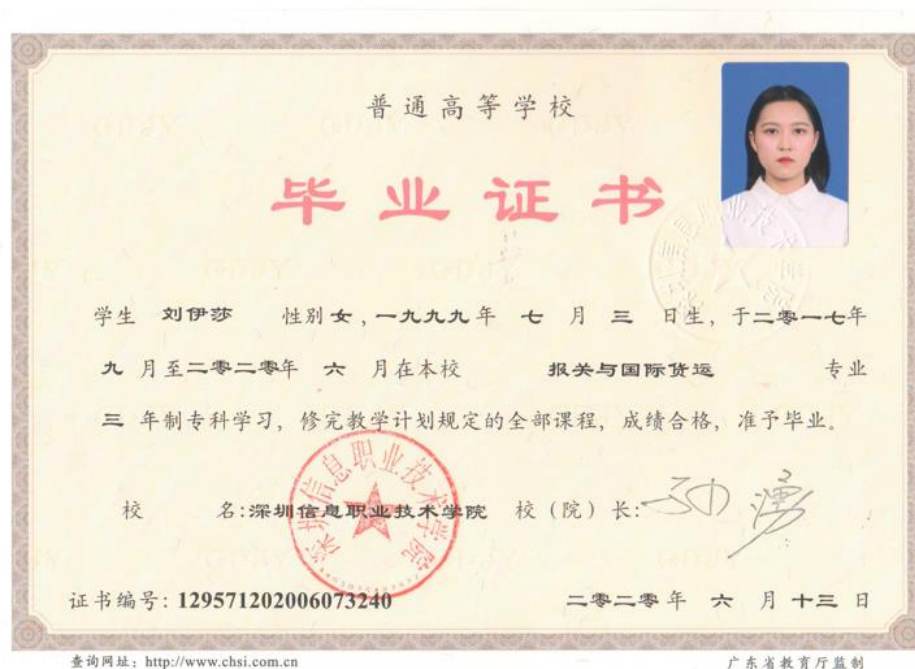 普通高等学校
毕业证书
学生 刘伊莎 性别 女，一九九九年 七 月 三 日生，于二零一七年
九 月至二零二零年 六 月在本校 报关与国际货运 专业
三 年制专科学习，修完教学计划规定的全部课程，成绩合格，准予毕业。
校 名:深圳信息职业技术学院 校（院）长:
深圳信息职业技术学院
证书编号: 129571202006073240 二零二零年 六 月 十三 日
查询网址: http://www.chsi.com.cn 广东省教育厅监制